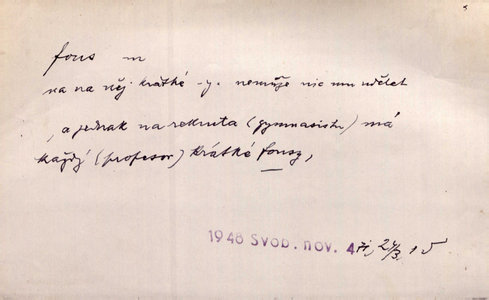 fous m
na na něj krátké -y. nemůže nic mu udělat
, a jednak na rekruta (gymnasistu) má
každý (profesor) krátké fousy,
1946 Svob. nov. 4ří, 24/3, 15